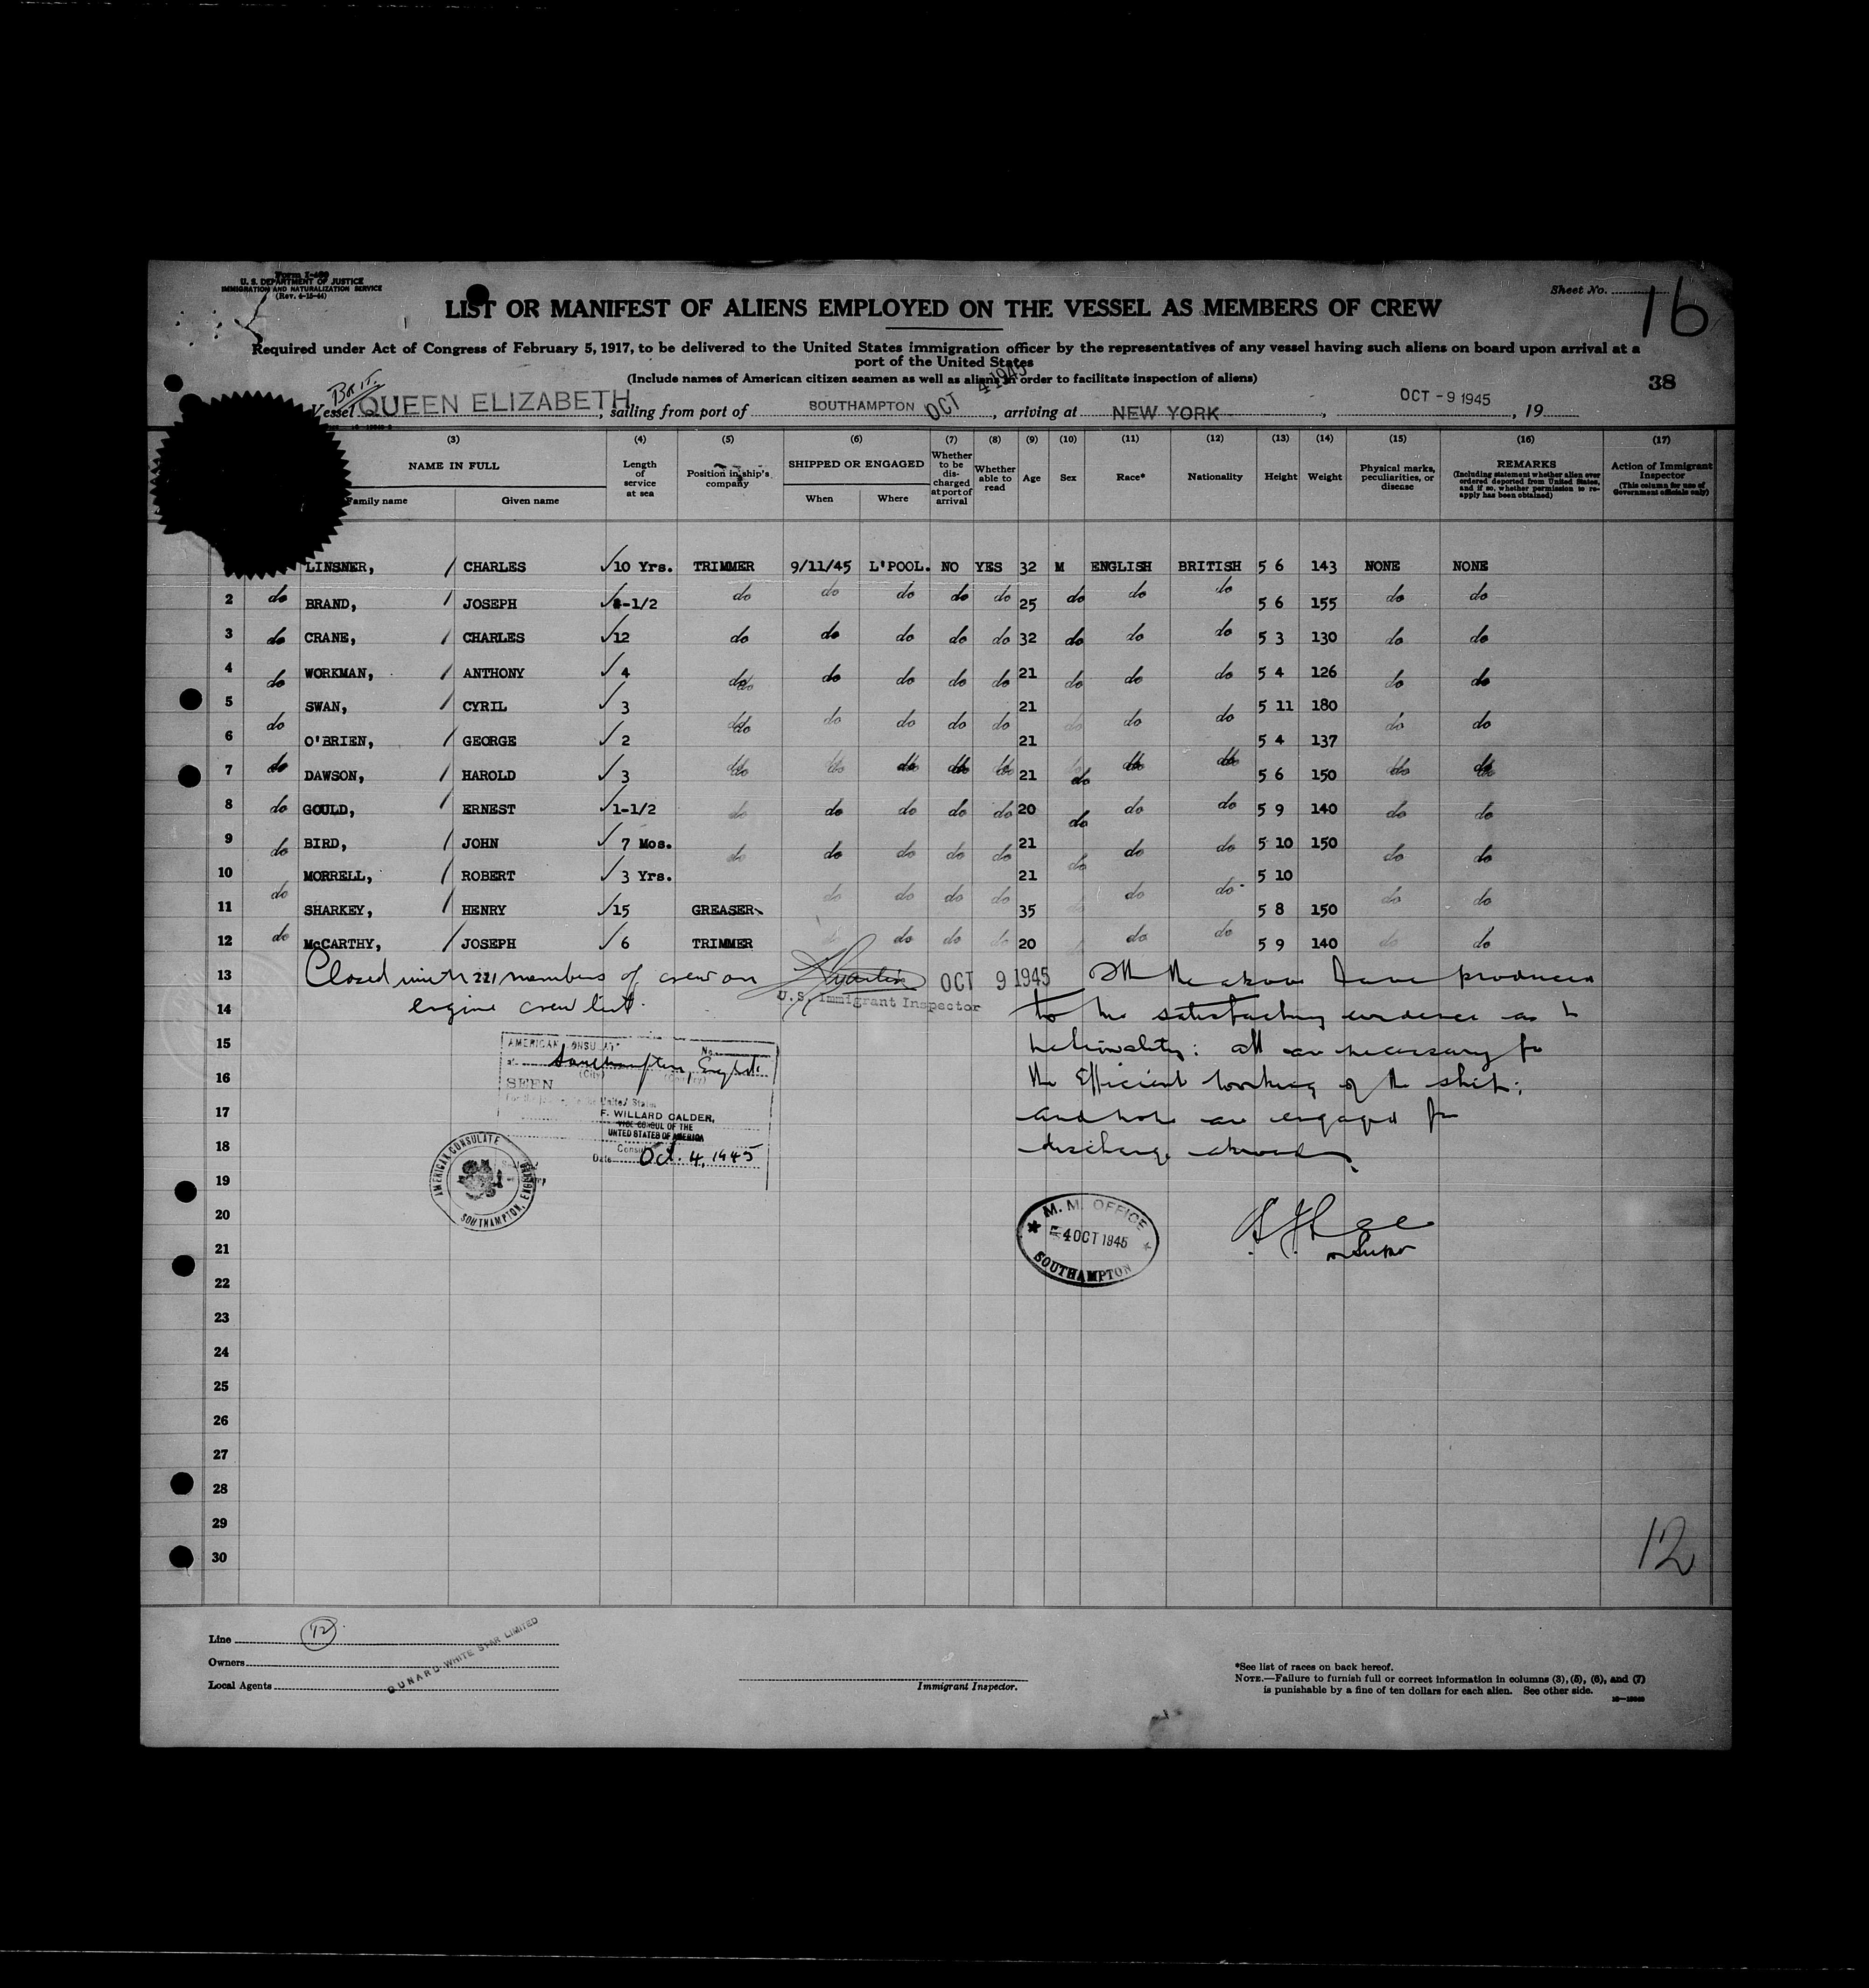 Form I-489
U. S. DEPARTMENT OF JUSTICE
IMMIGRATION AND NATURALIZATION SERVICE
(Rev. 4-15-44)
Sheet No.
16
LIST OR MANIFEST OF ALIENS EMPLOYED ON THE VESSEL AS MEMBERS OF CREW
Required under Act of Congress of February 5, 1917, to be delivered to the United States immigration officer by the representatives of any vessel having such aliens on board upon arrival at a
port of the United States
(Include names of American citizen seamen as well as aliens in order to facilitate inspection of aliens)
38
Brit.
Vessel QUEEN ELIZABETH, sailing from port of SOUTHAMPTON OCT 4 1945, arriving at NEW YORK, OCT - 9 1945, 19
(3) (4) (5) (6) (7) (8) (9) (10) (11) (12) (13) (14) (15) (16) (17)
NAME IN FULL Family name Given name
Length of service at sea
Position in ship's company
SHIPPED OR ENGAGED When Where
Whether to be discharged at port of arrival
Whether able to read
Age Sex Race* Nationality Height Weight
Physical marks, peculiarities, or disease
REMARKS (Including statement whether alien ever ordered deported from United States, and if so, whether permission to reapply has been obtained)
Action of Immigrant Inspector (This column for use of Government officials only)
LINSNER, / CHARLES ✓10 Yrs. TRIMMER 9/11/45 L'POOL. NO YES 32 M ENGLISH BRITISH 5 6 143 NONE NONE
2 do BRAND, / JOSEPH ✓-1/2 do do do do do 25 do do do 5 6 155 do do
3 do CRANE, / CHARLES ✓12 do do do do do 32 do do do 5 3 130 do do
4 do WORKMAN, / ANTHONY ✓4 do do do do do 21 do do do 5 4 126 do do
5 do SWAN, / CYRIL ✓3 do do do do do 21 do do do 5 11 180 do do
6 O'BRIEN, / GEORGE ✓2 21 5 4 137
7 do DAWSON, / HAROLD ✓3 do do do do do 21 do do do 5 6 150 do do
8 do GOULD, / ERNEST ✓1-1/2 do do do do do 20 do do do 5 9 140 do do
9 do BIRD, / JOHN ✓7 Mos. do do do do do 21 do do do 5 10 150 do do
10 MORRELL, / ROBERT ✓3 Yrs. 21 5 10
11 do SHARKEY, / HENRY ✓15 GREASER do do do do 35 do do do 5 8 150 do do
12 do McCARTHY, / JOSEPH ✓6 TRIMMER do do do do 20 do do 5 9 140 do do
13 Closed with 221 members of crew on OCT 9 1945 All the above have produced
engine crew list. U.S. Immigrant Inspector
14 to me satisfactory evidence as to
15 nationality: all are necessary for
16 the efficient working of the ship;
17 and none are engaged for
18 discharge abroad.
AMERICAN CONSULATE No.
at Southampton, England
(City) (Country)
SEEN
For the journey to the United States
F. WILLARD CALDER,
VICE CONSUL OF THE
UNITED STATES OF AMERICA
Date Oct. 4, 1945
AMERICAN CONSULATE
SOUTHAMPTON, ENGLAND
19
20
21
M. M. OFFICE
4 OCT 1945
SOUTHAMPTON
22
23
24
25
26
27
28
29
30
12
Line
12
Owners
Local Agents
CUNARD WHITE STAR LIMITED
Immigrant Inspector.
*See list of races on back hereof.
NOTE.—Failure to furnish full or correct information in columns (3), (5), (6), and (7)
is punishable by a fine of ten dollars for each alien. See other side.